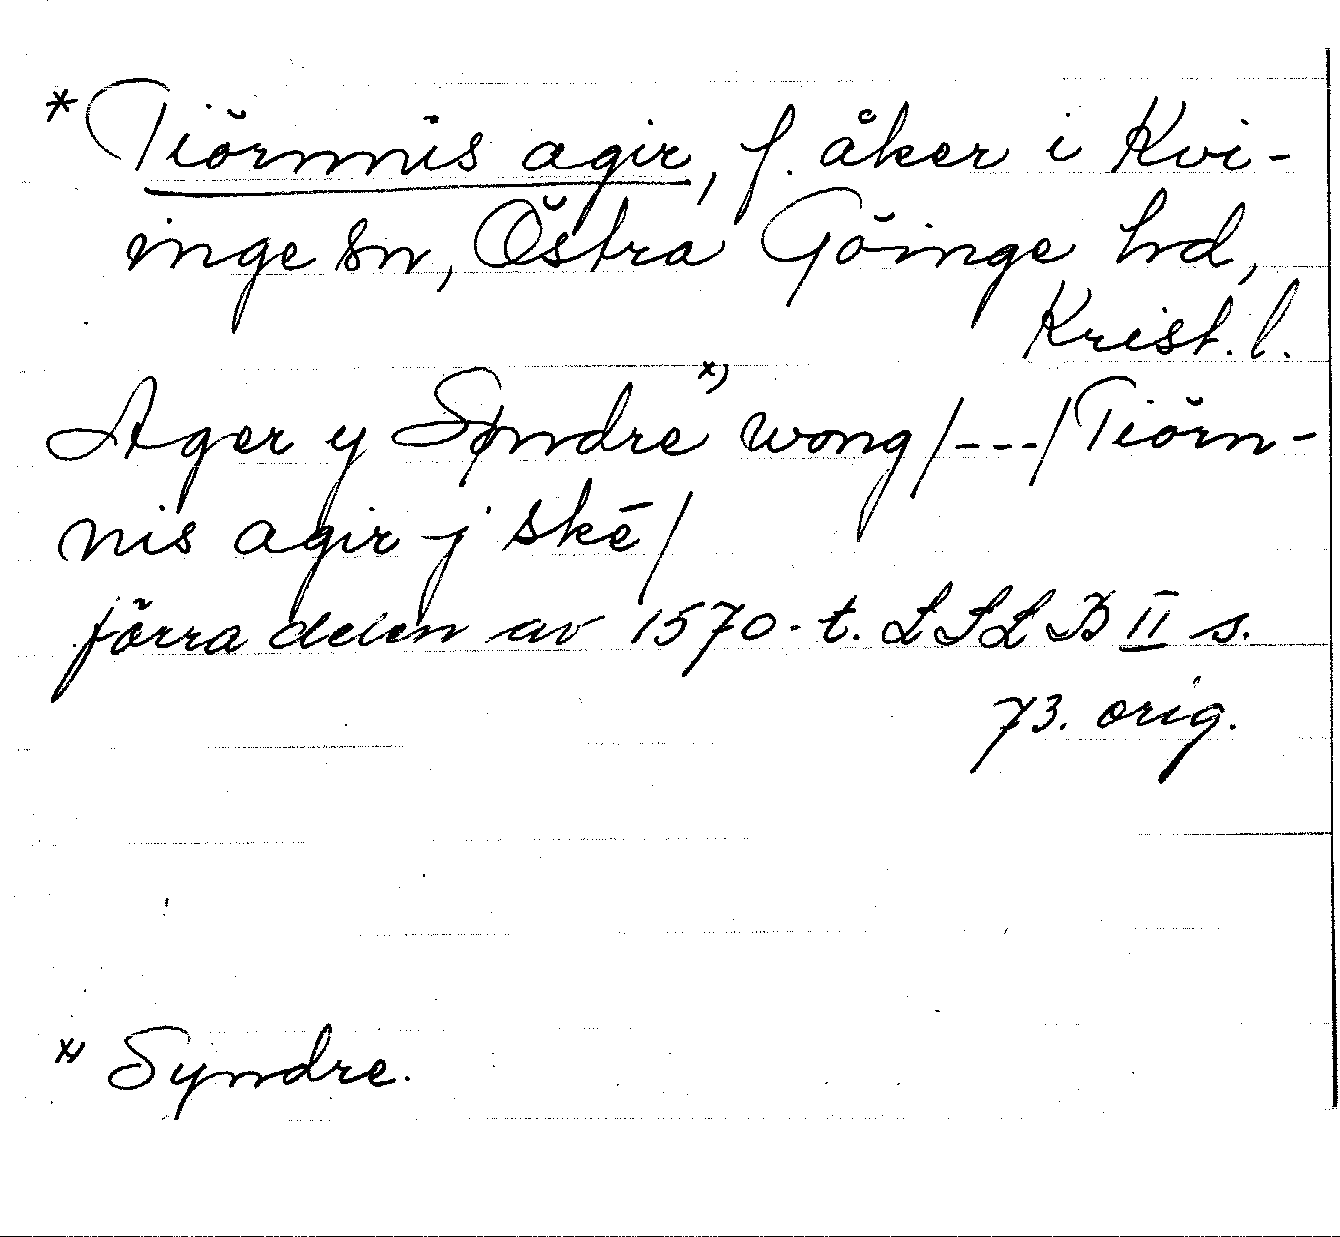 * Tiörnnis agir, f. åker i Kvi-
inge sn, Östra Göinge hd,
Krist. l.
Ager y Søndre x) wong /---/ Tiörn-
nis agir j skē /
förra delen av 1570-t. LSL B II s.
73. orig.
x) Syndre.